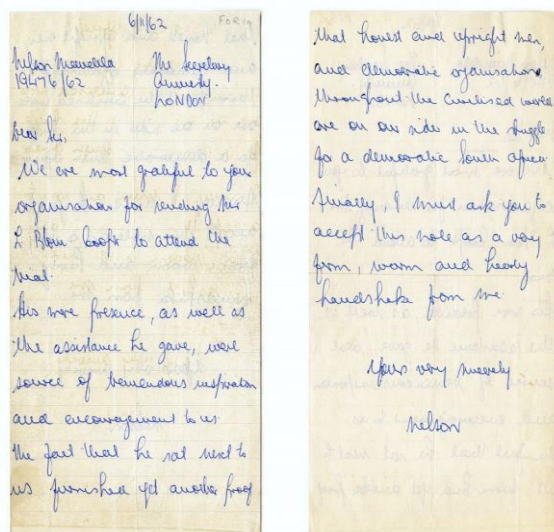 6/11/62
Nelson Mandela
19476/62
The Secretary
Amnesty
LONDON
Dear Sir,
We are most grateful to your
organisation for sending Mr
L. Blom Cooper to attend the
trial.
His mere presence, as well as
the assistance he gave, were
source of tremendous inspiration
and encouragement to us.
The fact that he sat next to
us furnished yet another proof
that honest and upright men,
and democratic organisations
throughout the civilised world
are on our side in the struggle
for a democratic South Africa
Finally, I must ask you to
accept this note as a very
firm, warm and hearty
handshake from me.
Yours very sincerely
Nelson